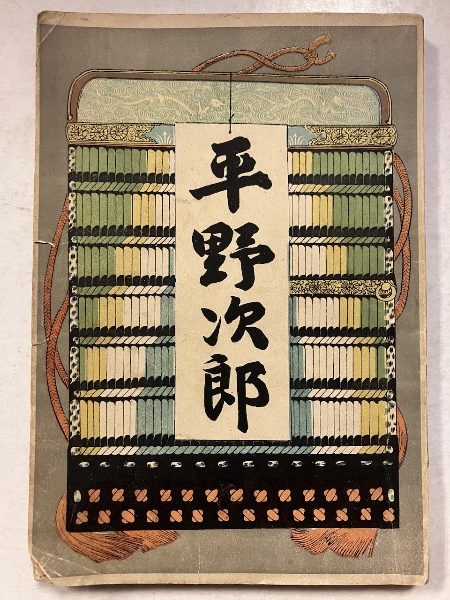 平野次郎